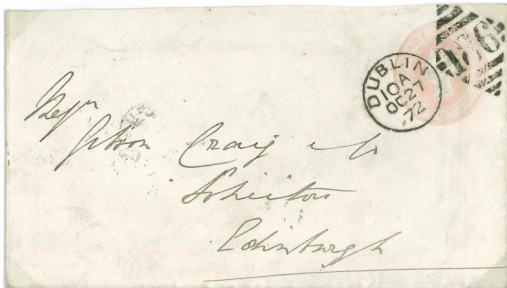 DUBLIN
10 A
OC 27
72
186
Messrs
Gibson Craig & Co
Solicitors
Edinburgh